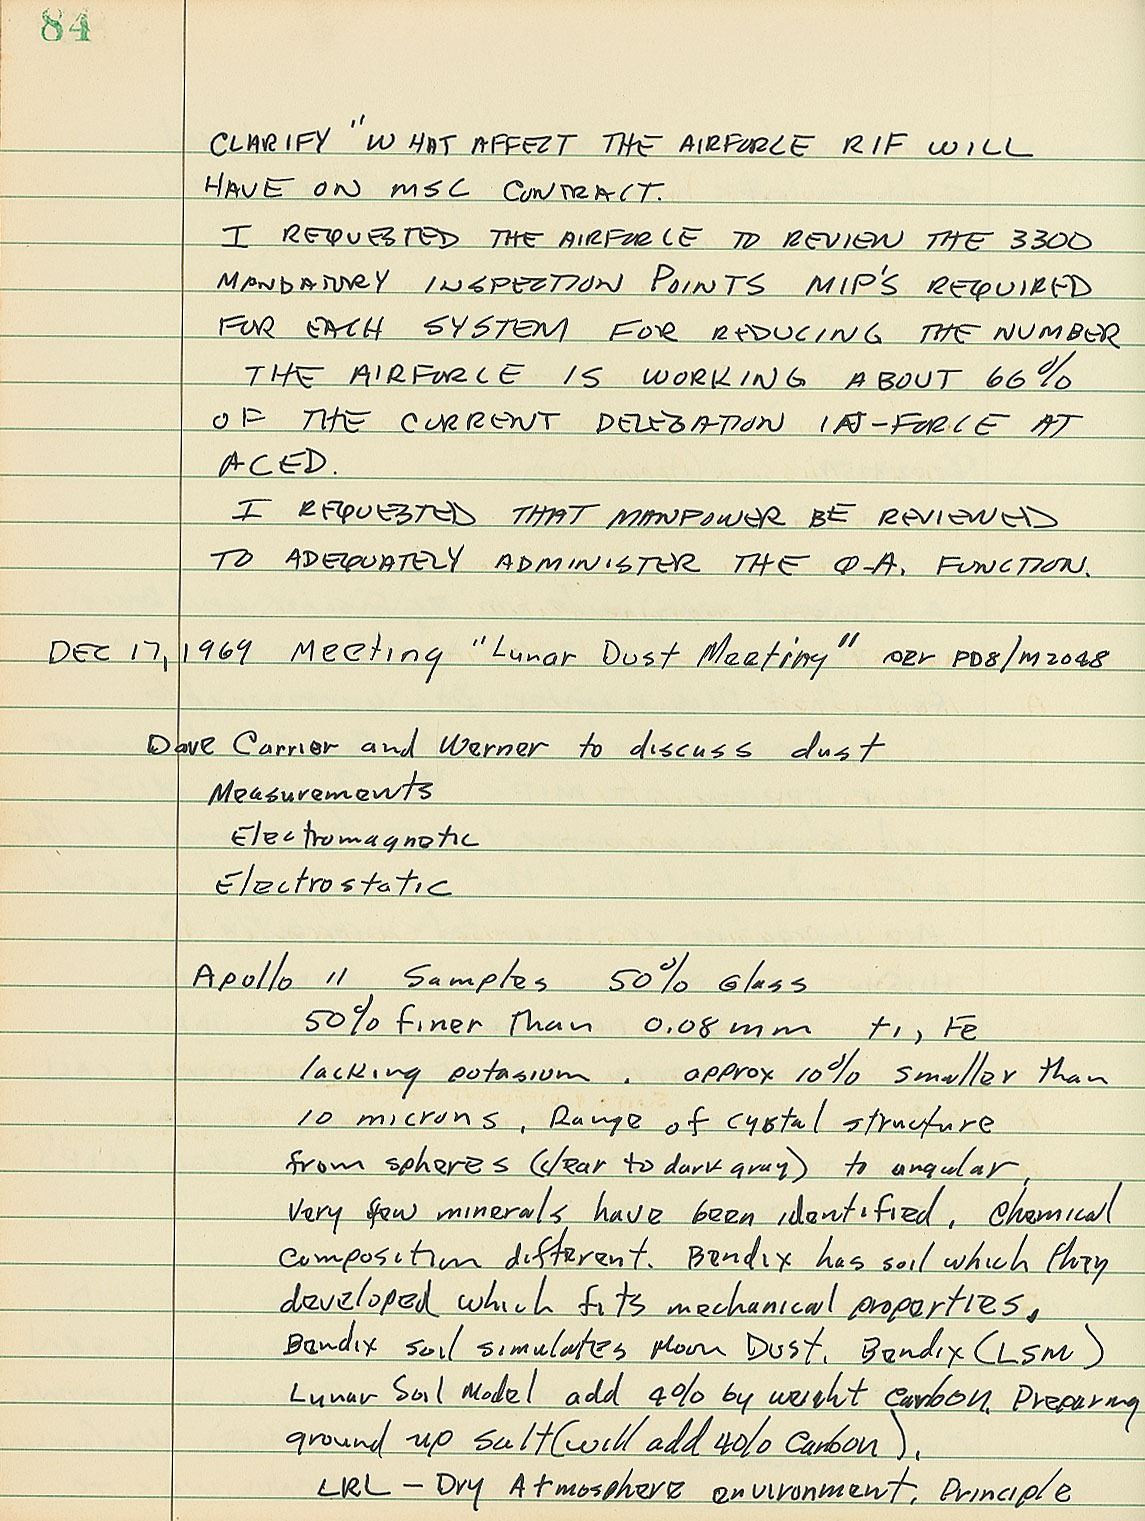 84
CLARIFY "WHAT AFFECT THE AIRFORCE RIF WILL
HAVE ON MSC CONTRACT.
I REQUESTED THE AIRFORCE TO REVIEW THE 3300
MANDATORY INSPECTION POINTS MIP'S REQUIRED
FOR EACH SYSTEM FOR REDUCING THE NUMBER
THE AIRFORCE IS WORKING ABOUT 66%
OF THE CURRENT DELEGATION IN-FORCE AT
ACED.
I REQUESTED THAT MANPOWER BE REVIEWED
TO ADEQUATELY ADMINISTER THE Q-A. FUNCTION.
DEC 17, 1969 Meeting "Lunar Dust Meeting" per PD8/M2048
Dave Carrier and Werner to discuss dust
Measurements
Electromagnetic
Electrostatic
Apollo 11 Samples 50% Glass
50% finer Than 0.08 mm ti, Fe
lacking potasium. approx 10% smaller than
10 microns, Range of cystal structure
from spheres (clear to dark gray) to angular,
Very few minerals have been identified. Chemical
composition different. Bendix has soil which they
developed which fits mechanical properties.
Bendix soil simulates Moon Dust. Bendix (LSM)
Lunar Soil Model add 4% by weight Carbon. Preparing
ground up salt (will add 4% Carbon).
LRL - Dry Atmosphere environment. Principle